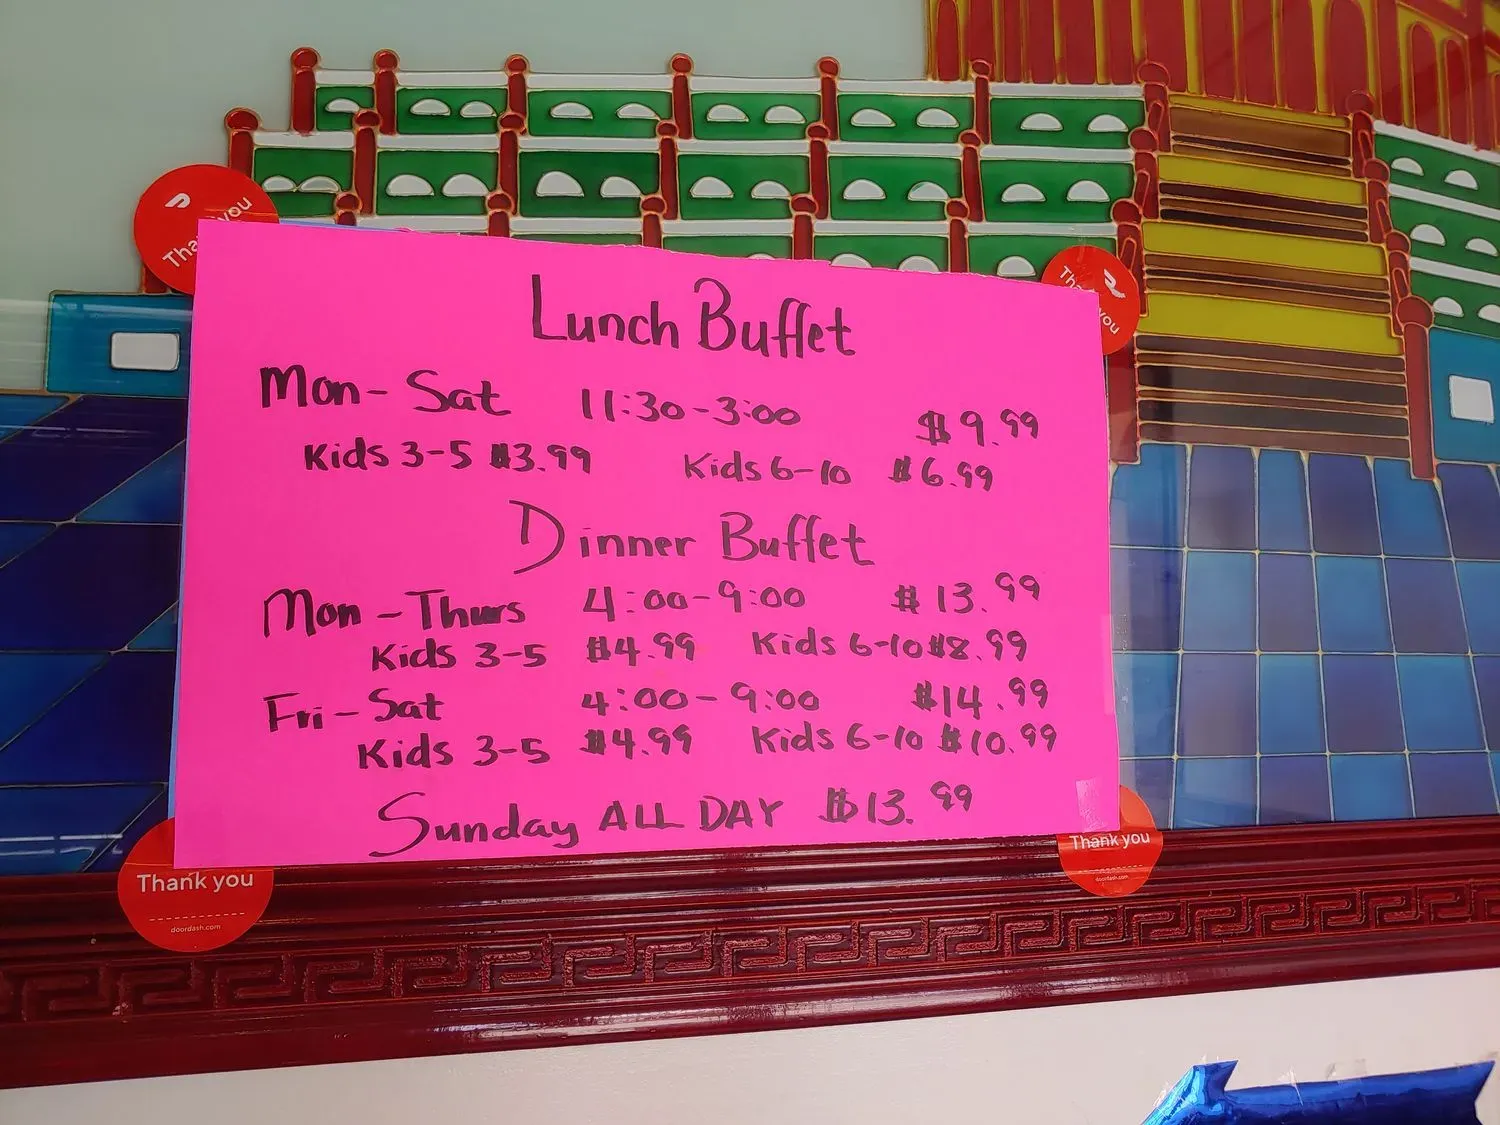 Thank you
Thank you
Lunch Buffet
Mon - Sat 11:30-3:00 $9.99
Kids 3-5 $3.99 Kids 6-10 $6.99
Dinner Buffet
Mon - Thurs 4:00-9:00 $13.99
Kids 3-5 $4.99 Kids 6-10 $8.99
Fri - Sat 4:00-9:00 $14.99
Kids 3-5 $4.99 Kids 6-10 $10.99
Sunday ALL DAY $13.99
Thank you
doordash.com
Thank you
doordash.com